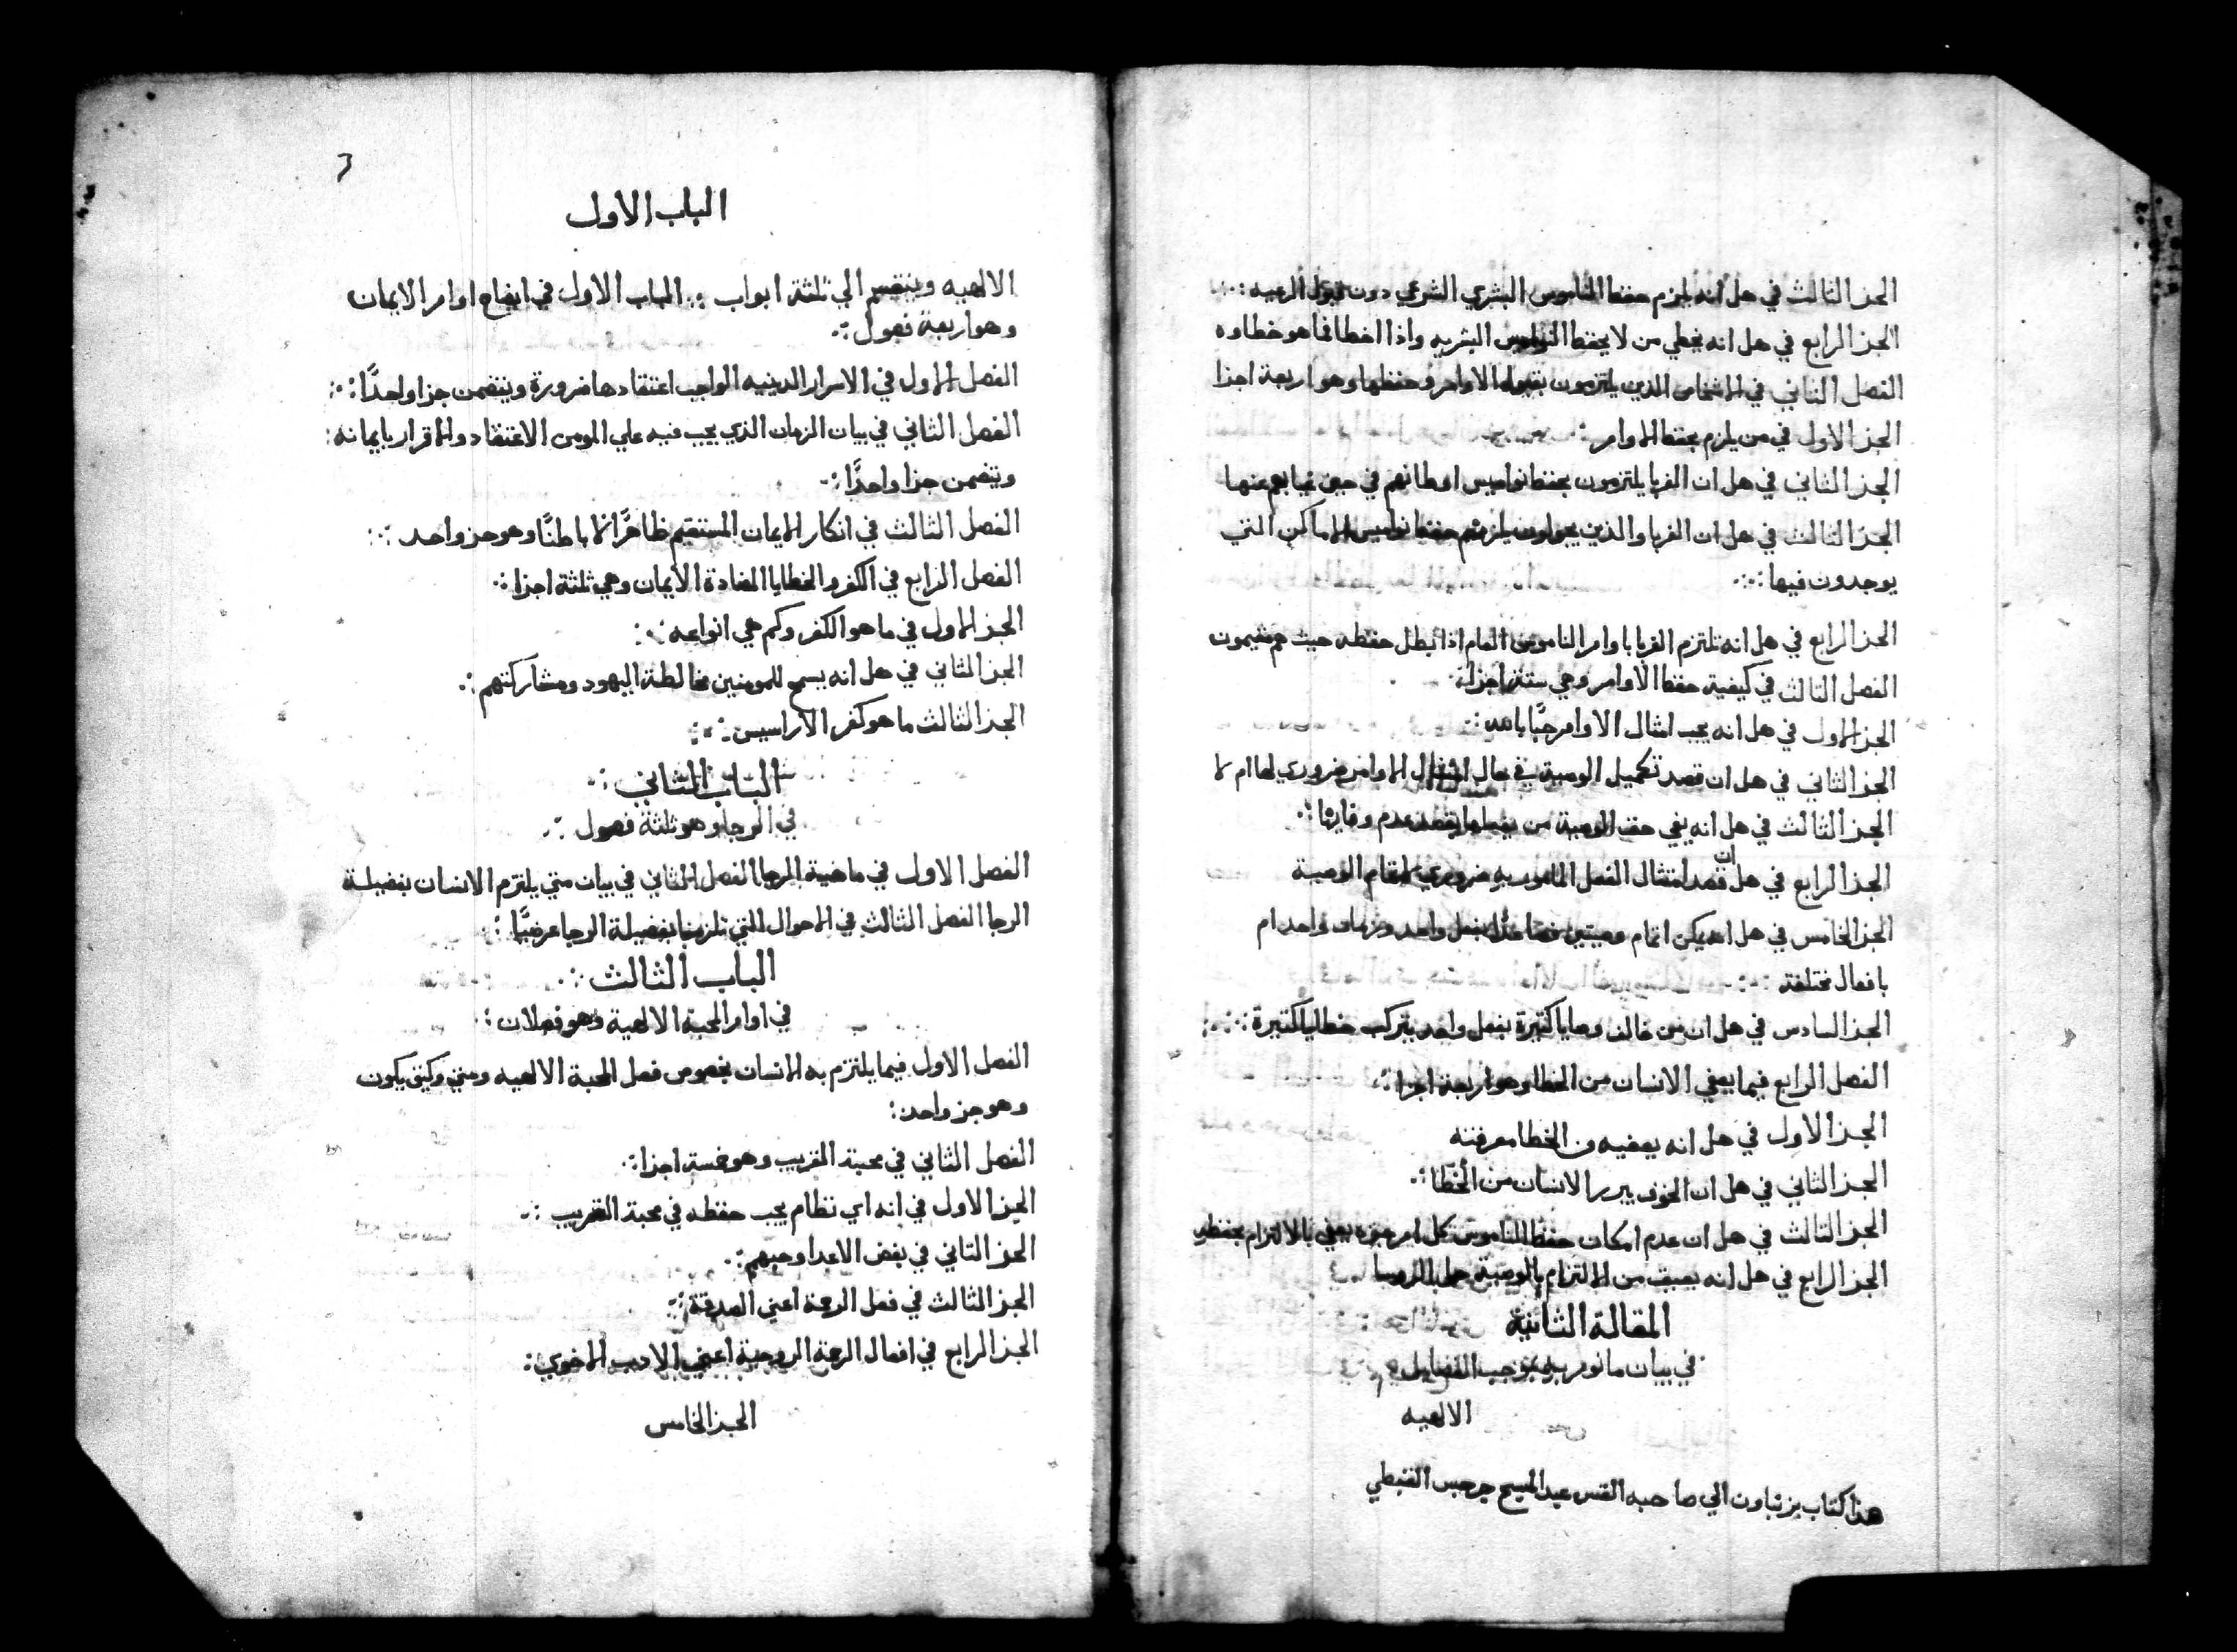 الجز الثالث في هل انه يلزم حفظ الناموس البشري الشرعي دون قبول الرعيه
الجز الرابع في هل انه يخطي من لا يحفظ النواميس البشريه واذا اخطا فما هو خطاوه
الفصل الثاني في الاشخاص الذين يلتزمون بقبول الاوامر وحفظها وهو اربعة اجزا
الجز الاول في من يلزم بحفظ الاوامر
الجز الثاني في هل ان الغربا يلتزمون بحفظ نواميس اوطانهم في حين غيابهم عنها
الجز الثالث في هل ان الغربا والذين يجولون يلزمهم حفظ نواميس الاماكن التي
يوجدون فيها
الجز الرابع في هل انه تلتزم الغربا باوامر الناموس العام اذا بطل حفظه حيث هم مقيمون
الفصل الثالث في كيفية حفظ الاوامر وهي ستة اجزا
الجز الاول في هل انه يجب امتثال الاوامر حبًا بالله
الجز الثاني في هل ان قصد تكميل الوصية في حال امتثال الاوامر ضروري لها ام لا
الجز الثالث في هل انه يفي حق الوصية من يفعلها بقصد عدم وفايها
الجز الرابع في هل ان قصد امتثال الفعل المامور به ضروري لاتمام الوصية
الجز الخامس في هل انه يمكن اتمام وصيتين فصاعدًا بفعل واحد وزمان واحد ام
بافعال مختلفة
الجز السادس في هل ان من خالف وصايا كثيرة بفعل واحد يرتكب خطايا كثيرة
الفصل الرابع فيما يعفي الانسان من الخطا وهو اربعة اجزا
الجز الاول في هل انه يعفيه من الخطا معرفته
الجز الثاني في هل ان الخوف يبرر الانسان من الخطا
الجز الثالث في هل ان عدم امكان حفظ الناموس كل امر جزوه يعفي بالالتزام بحفظه
الجز الرابع في هل انه يعيق من الالتزام بالوصية حل الروسا
المقالة الثانية
في بيان ما نومر به بموجب الفضايل
الالهيه
هذا كتاب بزنباون الي صاحبه القس عبد المسيح جرجس القبطي
الباب الاول
الالهيه وينقسم الي ثلثة ابواب الباب الاول في ايضاح اوامر الايمان
وهو اربعة فصول
الفصل الاول في الاسرار الدينيه الواجب اعتقادها ضرورة ويتضمن جزا واحدًا
الفصل الثاني في بيان الزمان الذي يجب فيه علي المومن الاعتقاد والاقرار بايمانه
ويتضمن جزا واحدًا
الفصل الثالث في انكار الايمان المستقيم ظاهرًا لا باطنًا وهو جز واحد
الفصل الرابع في الكفر والخطايا المضادة الايمان وهي ثلثة اجزا
الجز الاول في ما هو الكفر وكم هي انواعه
الجز الثاني في هل انه يسمح للمومنين مخالطة اليهود ومشاركتهم
الجز الثالث ما هو كفر الاراسيس
الباب الثاني
في الرجا وهو ثلثة فصول
الفصل الاول في ماهية الرجا الفصل الثاني في بيان متي يلتزم الانسان بفضيلة
الرجا الفصل الثالث في الاحوال التي تلزمنا بفضيلة الرجا عرضيًا
الباب الثالث
في اوامر المحبة الالهية وهو فصلان
الفصل الاول فيما يلتزم به الانسان بخصوص فصل المحبة الالهيه ومتي وكيف يكون
وهو جز واحد
الفصل الثاني في محبة القريب وهو خمسة اجزا
الجز الاول في انه اي نظام يجب حفظه في محبة القريب
الجز الثاني في بغض الاعدا وحبهم
الجز الثالث في فعل الرحمة اعني الصدقة
الجز الرابع في افعال الرحمة الروحية اعني الاديب الاخوي
الجز الخامس